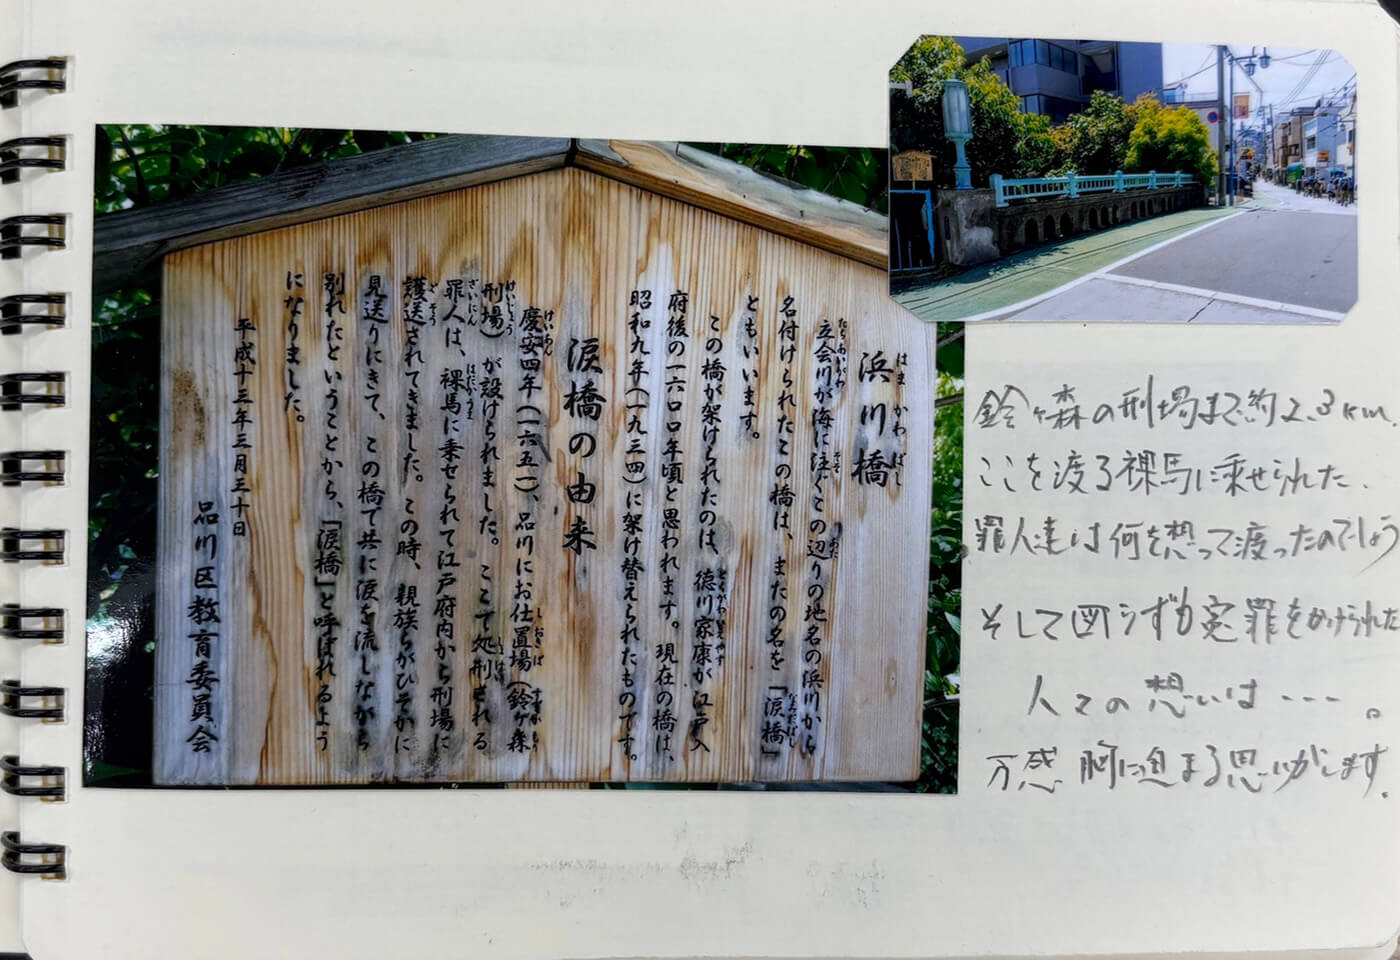 浜川橋
はまかわばし
立会川が海に注ぐこの辺りの地名の浜川から
たちあいがわ そそ あた
名付けられたこの橋は、またの名を「涙橋」
なみだばし
ともいいます。
この橋が架けられたのは、徳川家康が江戸入
とくがわいえやす
府後の一六〇〇年頃と思われます。現在の橋は、
昭和九年(一九三四)に架け替えられたものです。
涙橋の由来
慶安四年(一六五一)、品川にお仕置場(鈴ヶ森
けいあん しおきば すずがもり
刑場)が設けられました。ここで処刑される
けいじょう
罪人は、裸馬に乗せられて江戸府内から刑場に
ざいにん はだかうま
護送されてきました。この時、親族らがひそかに
ごそう
見送りにきて、この橋で共に涙を流しながら
別れたということから、「涙橋」と呼ばれるよう
になりました。
平成十三年三月三十日
品川区教育委員会
鈴ヶ森の刑場まで約2.3km、
ここを渡る裸馬に乗せられた、
罪人達は何を想って渡ったのでしょう
そして図らずも冤罪をかけられた
人々の想いは---。
万感胸に迫まる思いがします。